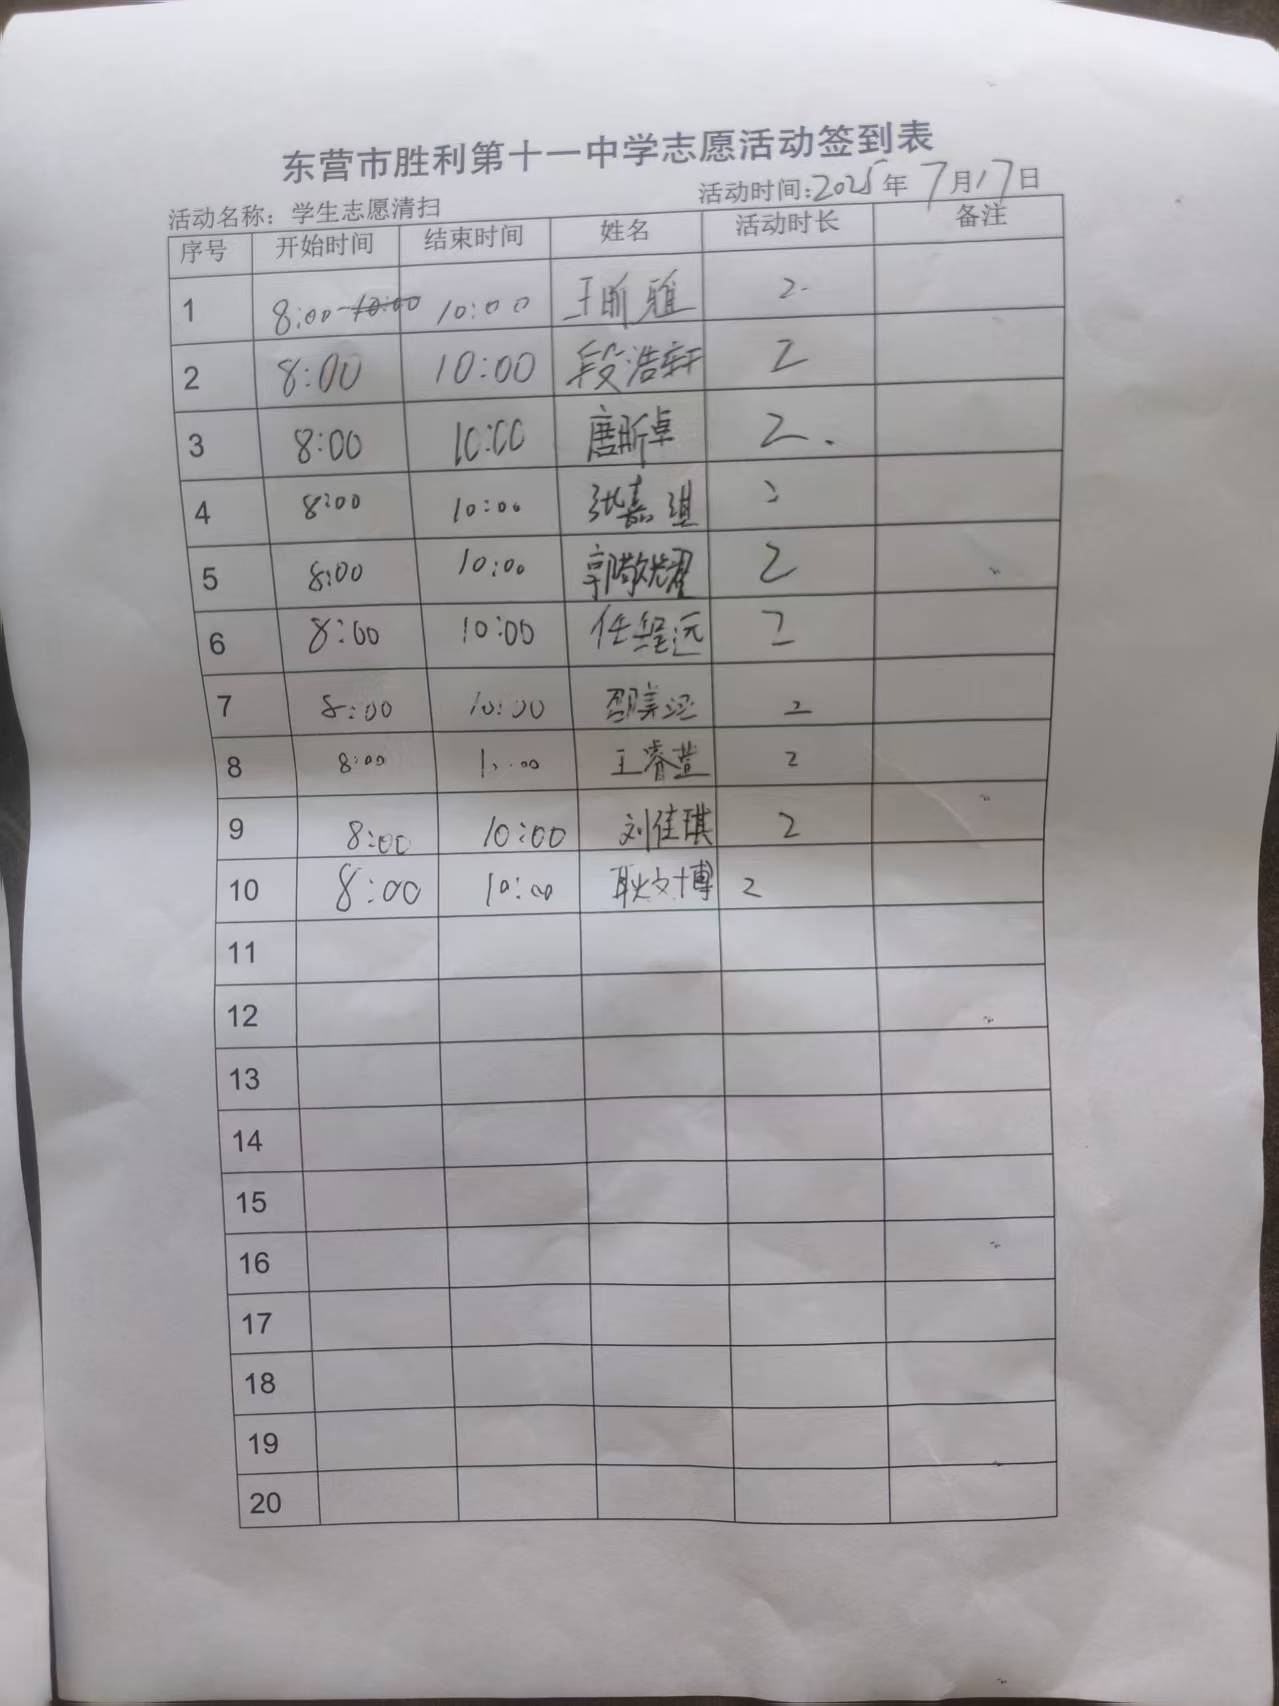 东营市胜利第十一中学志愿活动签到表
活动名称：学生志愿清扫 活动时间:2025年7月17日
序号 开始时间 结束时间 姓名 活动时长 备注
1 8:00 10:00 王昕雅 2
2 8:00 10:00 段浩轩 2
3 8:00 10:00 唐昕卓 2.
4 8:00 10:00 张嘉琪 2
5 8:00 10:00 郭敬耀 2
6 8:00 10:00 任远 2
7 8:00 10:00 邵美 2
8 8:00 10:00 王睿萱 2
9 8:00 10:00 刘佳琪 2
10 8:00 10:00 耿文博 2
11
12
13
14
15
16
17
18
19
20